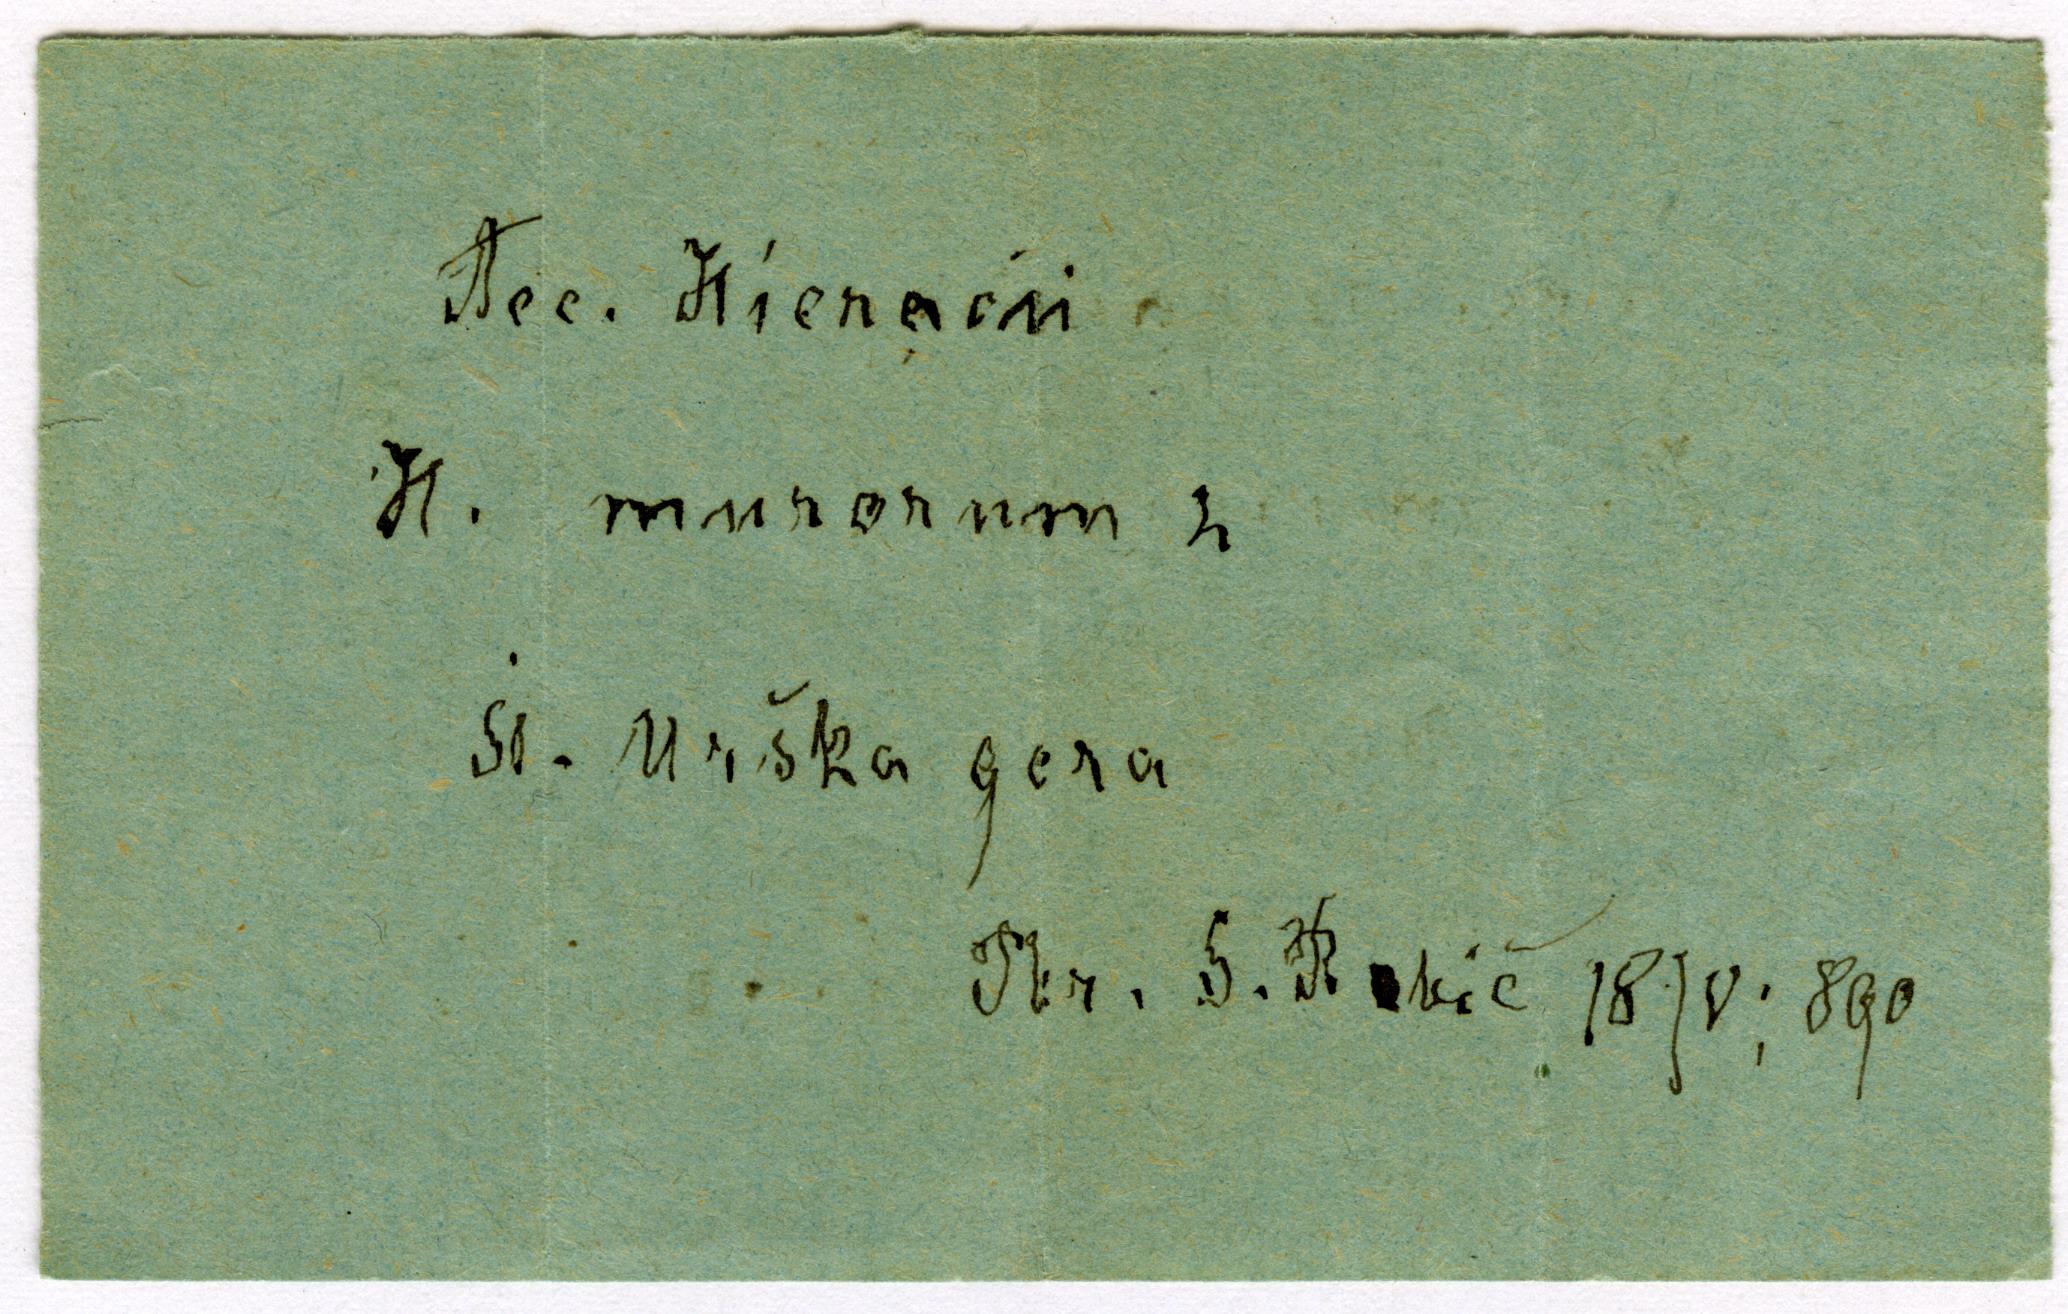 Aec. Hieracii
H. murorum L
St. Urška gora
Skr. S. Rokić 18/V; 890